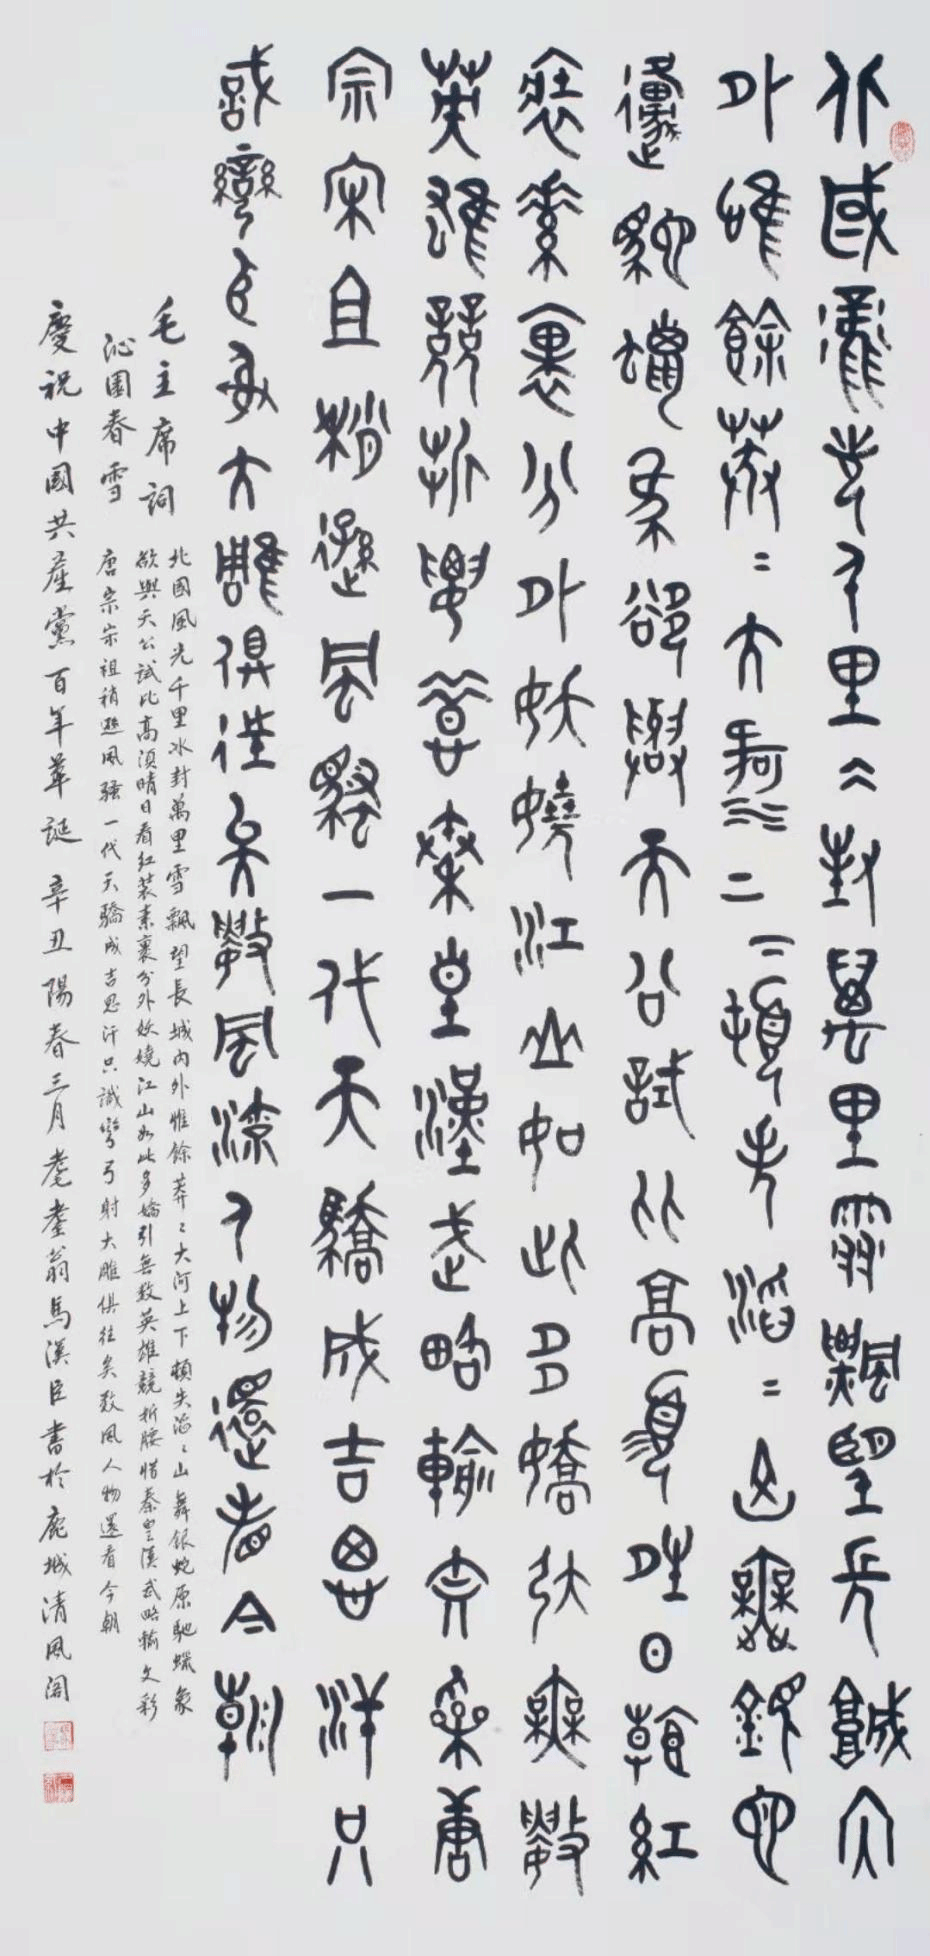 北國風光千里冰封萬里雪飄望長城內
外惟餘莽〻大河上下頓失滔〻山舞銀蛇
原馳蠟象欲與天公試比高須晴日看紅
裝素裹分外妖嬈江山如此多嬌引無數
英雄競折腰惜秦皇漢武略輸文采唐
宗宋祖稍遜風騷一代天驕成吉思汗只
識彎弓射大雕俱往矣數風流人物還看今朝
毛主席詞
沁園春雪
北國風光千里冰封萬里雪飄望長城內外惟餘莽〻大河上下頓失滔〻山舞銀蛇原馳蠟象
欲與天公試比高須晴日看紅裝素裹分外妖嬈江山如此多嬌引無數英雄競折腰惜秦皇漢武略輸文彩
唐宗宋祖稍遜風騷一代天驕成吉思汗只識彎弓射大雕俱往矣數風人物還看今朝
慶祝中國共產黨百年華誕 辛丑陽春三月耄耋翁馬漢臣書於鹿城清風閣